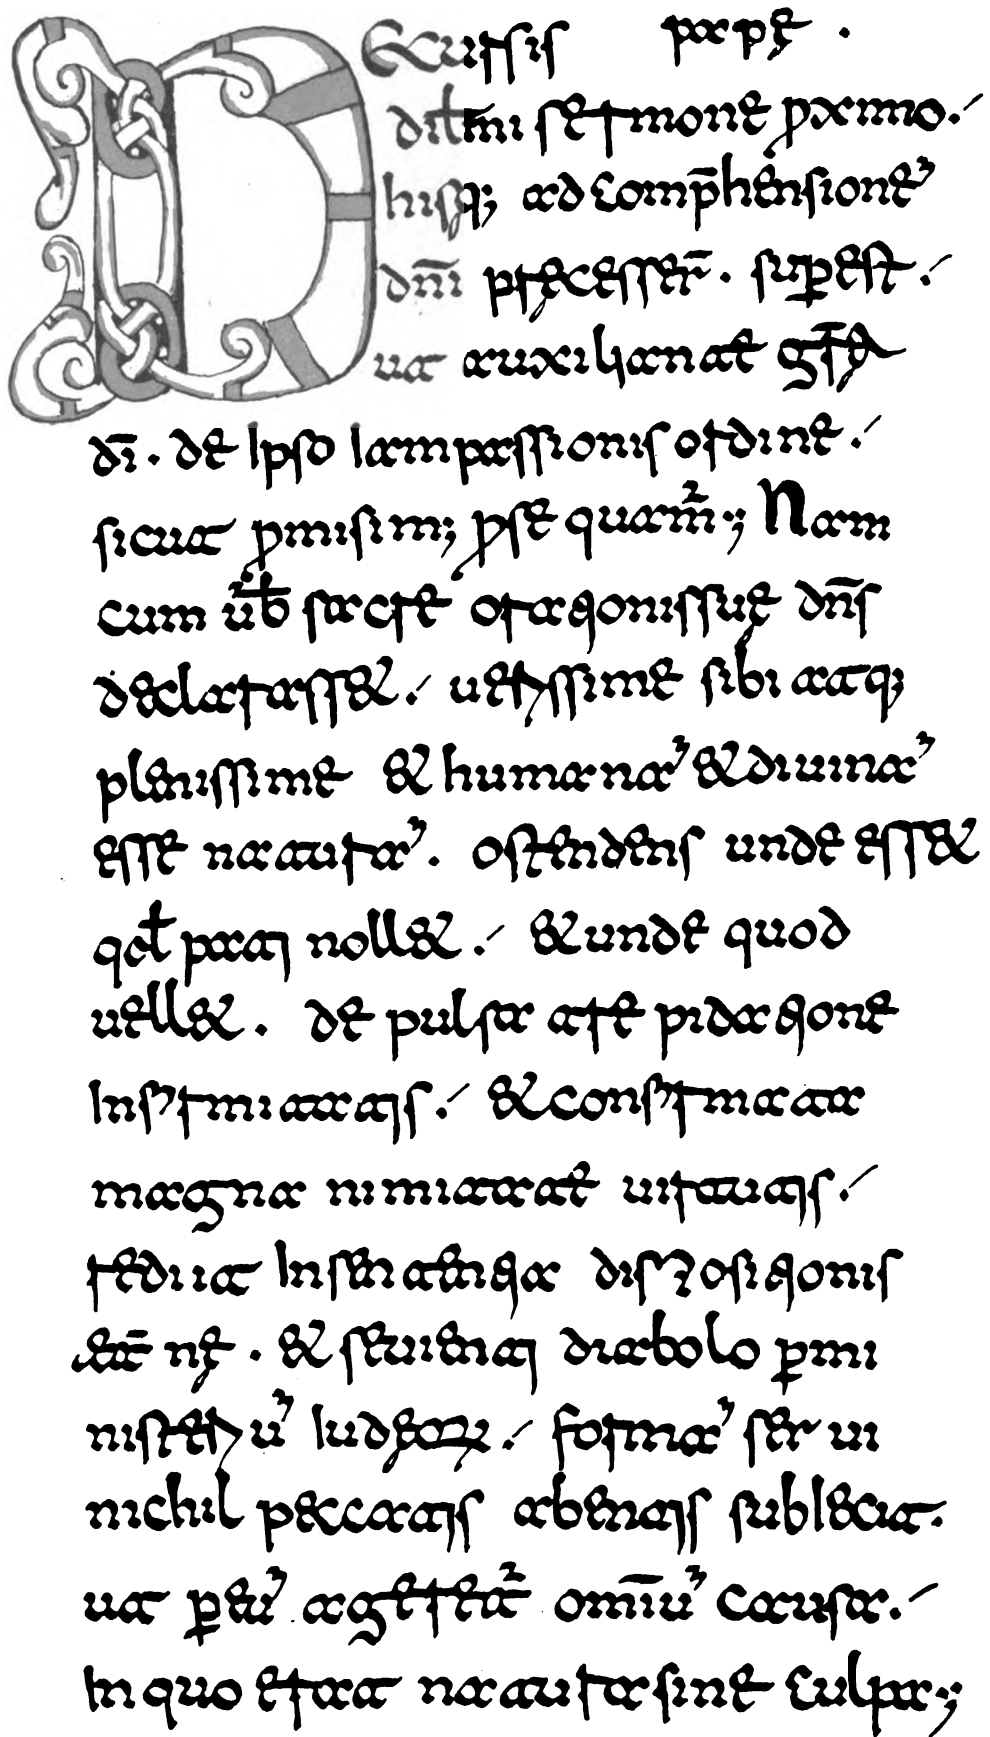 DEcursis papę .
dilm̄i sermone proximo./
hisq; ad comp̄hensionē
dn̄i precesser̄ . sup̱est ./
ut auxiliante gr̄ę
dī . de Ipso Iam passionis ordine ./
sicut promisim; prosequam̄ .; Nam
cum ūb sacre orationis suę dn̄s
declarass& ./ uerissime sibi atq;
plenissime & humanā & diuinā
esse naturā . ostendens unde ess&
qd̄ pati noll& ./ & unde quod
uell& . De pulsa atre pidatione
Infirmitatis ./ & confirmata
magna nimitate uirtutis ./
rediit In sententia dispositionis
et̄ nę . & seuienti diabolo p̱mi
nisteriū Iudęoꝝ ./ formā ser ui
nichil peccatis abentis subIecit .
ut p̱ eū ageret̄ om̄iū causa ./
In quo erat natura sine culpa .;